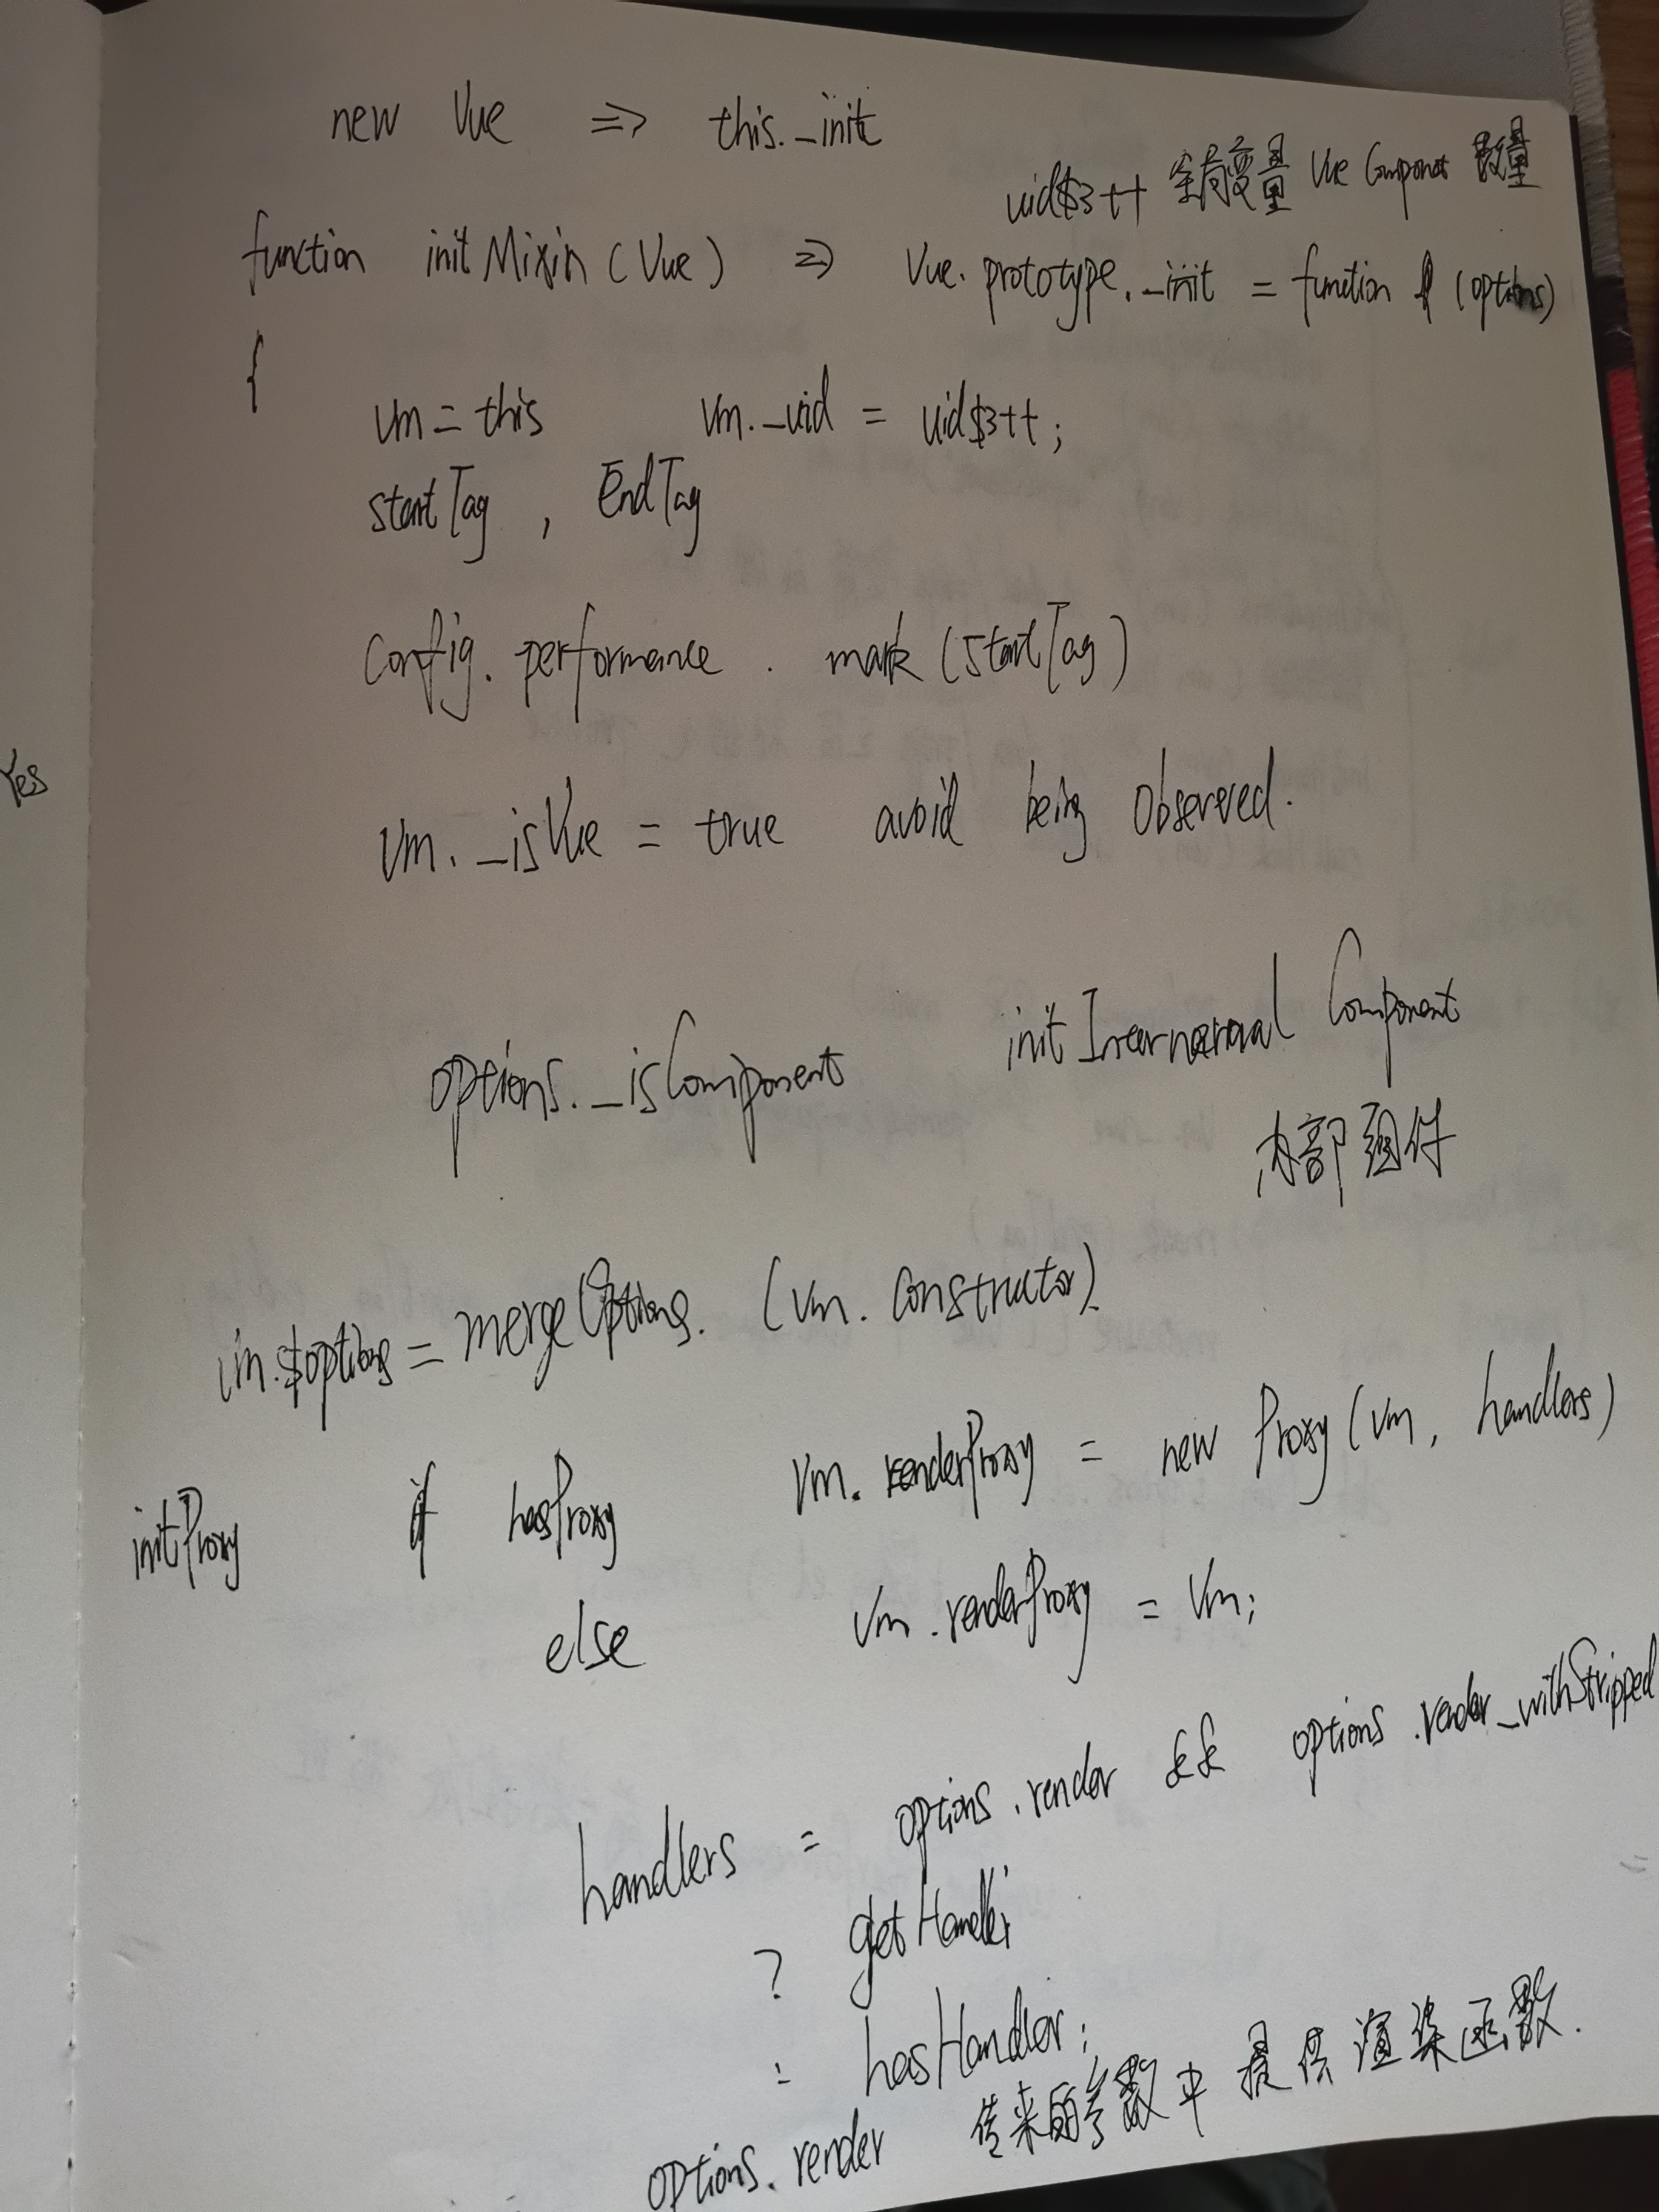 new Vue => this._init
uid$3++ 全局变量 Vue Componet 数量
function initMixin (Vue) => Vue.prototype._init = function (options)
{
vm = this vm._uid = uid$3++;
startTag , EndTag
Config.performance . mark (startTag)
Yes
vm._isVue = true avoid being observed.
options._isComponent initInternernal Component
内部组件
vm.$options = mergeOptions. (vm.constructor).
initProxy if hasProxy vm.renderProxy = new Proxy (vm, handlers)
else vm.renderProxy = vm;
handlers = options.render && options.render_withStripped
? getHandler
: hasHandler;
options.render 传来的参数中提供渲染函数.